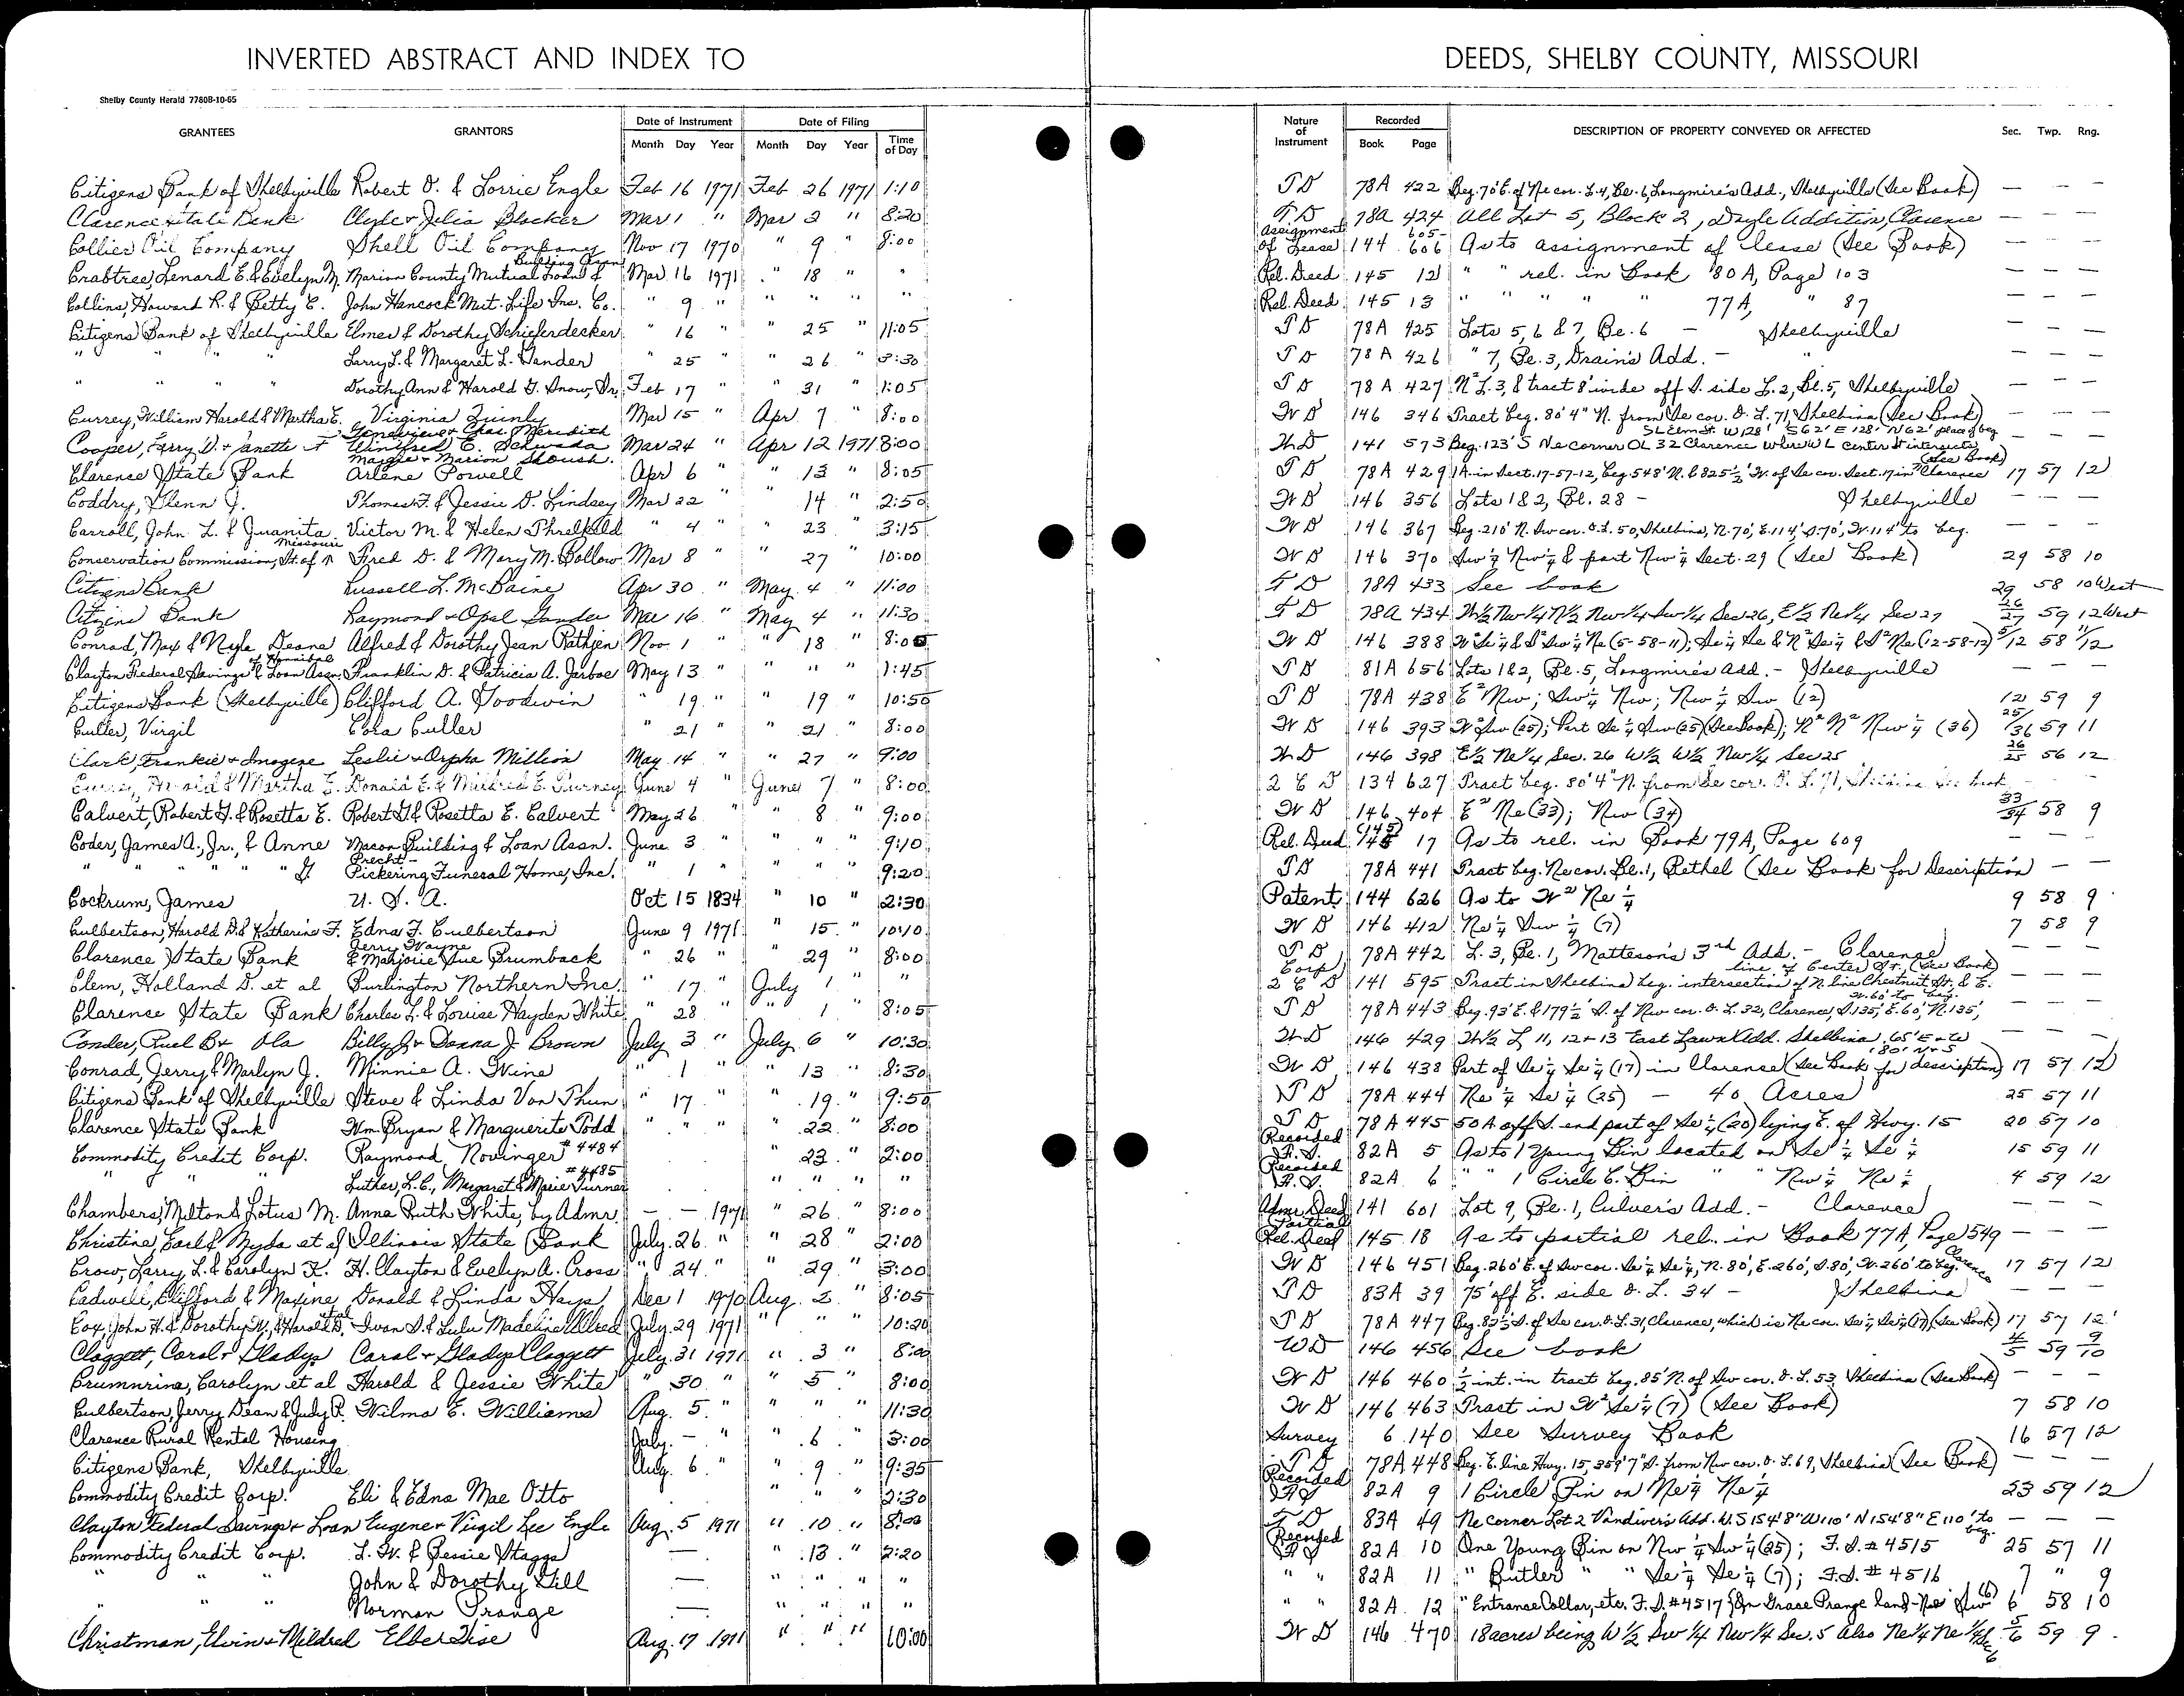 INVERTED ABSTRACT AND INDEX TO DEEDS, SHELBY COUNTY, MISSOURI
Shelby County Herald 7780B-10-65
GRANTEES GRANTORS Date of Instrument Date of Filing Time of Day Nature of Instrument Recorded DESCRIPTION OF PROPERTY CONVEYED OR AFFECTED Sec. Twp. Rng.
Month Day Year Month Day Year Book Page
Citizens Bank of Shelbyville Robert O. & Lorrie Engle Feb 16 1971 Feb 26 1971 1:10 T D 78A 422 Beg. 70' E. of Ne cor. L. 4, Bl. 6, Longmire's Add., Shelbyville (See Book) — — —
Clarence State Bank Clyde & Julia Blocker Mar 1 " Mar 2 " 8:20 T. D 78A 424 All Lot 5, Block 2, Dayle Addition, Clarence — — —
Collier Oil Company Shell Oil Company Nov 17 1970 " 9 " 8:00 Assignment of Lease 144 605-606 As to assignment of lease (See Book) — — —
Crabtree, Lenard E. & Evelyn M. Marion County Mutual Building & Loan Mar 16 1971 " 18 " " Rel. Deed 145 12 " " rel. in Book 80A, Page 103 — — —
Collins, Howard R. & Betty E. John Hancock Mut. Life Ins. Co. " 9 " " " " " Rel. Deed 145 13 " " " " 77A, " 87 — — —
Citizens Bank of Shelbyville Elmer & Dorothy Schieferdecker " 16 " 25 " 11:05 T D 78A 425 Lots 5, 6 & 7, Bl. 6 — Shelbyville — — —
" " " " Larry L. & Margaret L. Gander " 25 " 26 " 3:30 T D 78A 426 " 7, Bl. 3, Drain's Add. — " — — —
" " " " Dorothy Ann & Harold G. Snow, Jr. Feb 17 " " 31 " 1:05 T D 78A 427 N² L. 3, & tract 8' wide off S. side L. 2, Bl. 5, Shelbyville — — —
Currey, William Harold & Martha E. Virginia Quinly Mar 15 " Apr 7 " 8:00 W D 146 346 Tract beg. 80' 4" N. from Se cor. O. L. 71, Shelbina (See Book) — — —
Cooper, Larry D. & Janette Genevieve & Chas. Meredith Winifred E. Schwada Maggie & Marion Shoush. Mar 24 " Apr 12 1971 8:00 W.D 141 573 Beg. 123' S Ne corner OL 32 Clarence where W L center St intersects SL Elm St. W 128' S 62' E 128' N 62' place of beg — — —
Clarence State Bank Arlene Powell Apr 6 " " 13 " 8:05 T D 78A 429 1A. in Sect. 17-57-12, beg 548' N. & 825½' W. of Se cor. Sect. 17 in Clarence (See Book) 17 57 12
Coddry, Glenn J. Thomas F. & Jessie D. Lindsey Mar 22 " " 14 " 2:50 W D 146 356 Lots 1 & 2, Bl. 28 — Shelbyville — — —
Carroll, John L. & Juanita Victor M. & Helen Threlkeld " 4 " 23 " 3:15 W D 146 367 Beg. 210' N. Sw cor. O. L. 50, Shelbina, N. 70', E. 114', S. 70', W. 114' to beg. — — —
Conservation Commission, St. of Missouri Fred D. & Mary M. Bollow Mar 8 " " 27 10:00 W D 146 370 Sw ¼ Nw ¼ & part Nw ¼ Sect. 29 (See Book) 29 58 10
Citizens Bank Russell L. McBaine Apr 30 " May 4 " 11:00 T D 78A 433 See book 29 58 10 West
Citizens Bank Raymond & Opal Gander Mar 16 " May 4 " 11:30 T D 78A 434 W½ Nw¼ N½ Nw¼ Sw¼ Sec 26, E½ Ne¼ Sec 27 26/27 59 12 West
Conrad, Max & Nyla Deane Alfred & Dorothy Jean Rathjen Nov. 1 " " 18 " 8:00 W D 146 388 W² Se ¼ & S² Sw ¼ Ne (5-58-11); Se ¼ Se & N² Se ¼ & S² Ne (12-58-12) 5/12 58 11/12
Clayton Federal Savings & Loan Assn. of Hannibal Franklin D. & Patricia A. Jarboe May 13 " " " " 1:45 T D 81A 656 Lots 1 & 2, Bl. 5, Longmire's Add. — Shelbyville — — —
Citizens Bank (Shelbyville) Clifford A. Goodwin " 19 " " 19 " 10:50 T D 78A 438 E² Nw; Sw ¼ Nw; Nw ¼ Sw (12) 12 59 9
Culler, Virgil Cora Culler " 21 " " 21 " 8:00 W D 146 393 W² Sw (25); Part Se ¼ Sw (25) (See Book); N² N² Nw ¼ (36) 25/36 59 11
Clark, Frankie & Imogene Leslie & Orpha Million May 14 " " 27 " 9:00 W.D 146 398 E½ Ne¼ Sec. 26 W½ W½ Nw¼ Sec 25 26/25 56 12
Currey, Harold & Martha E. Donald E. & Mildred E. Gurney June 4 " June 7 " 8:00 2 C D 134 627 Tract beg. 80' 4" N. from Se cor. O. L. 71, Shelbina See book
Calvert, Robert G. & Rosetta E. Robert G. & Rosetta E. Calvert May 26 " " 8 " 9:00 W D 146 404 E² Ne (33); Nw (34) 33/34 58 9
Coder, James A., Jr., & Anne Macon Building & Loan Assn. June 3 " " " " 9:10 Rel. Deed 145 17 As to rel. in Book 79A, Page 609 — — —
" " " " " G. Precht-Pickering Funeral Home, Inc. " 1 " " " " 9:20 T D 78A 441 Tract beg. Ne cor. Bl. 1, Bethel (See Book for Description) — —
Cockrum, James U. S. A. Oct 15 1834 " 10 " 2:30 Patent 144 626 As to W² Ne ¼ 9 58 9
Culbertson, Harold D. & Katherine F. Edna F. Culbertson June 9 1971 " 15 " 10:10 W D 146 412 Ne ¼ Sw ¼ (7) 7 58 9
Clarence State Bank Jerry Wayne & Marjorie Sue Brumback " 26 " " 29 " 8:00 T D 78A 442 L. 3, Bl. 1, Matteson's 3rd Add. — Clarence — — —
Clem, Holland D. et al Burlington Northern Inc. " 17 " July 1 " " Corp 2 C D 141 595 Tract in Shelbina beg. intersection of N. line Chestnut St. & E. line of Center St. (See Book) — — —
Clarence State Bank Charles L. & Louise Hayden White " 28 " 1 " 8:05 T D 78A 443 Beg. 93' E. & 179½' S. of Nw cor. O. L. 32, Clarence, S. 135', E. 60', N. 135', W. 60' to beg. — — —
Conder, Ruel B & Ola Billy J & Danna J. Brown July 3 " July 6 " 10:30 W.D 146 429 W½ L 11, 12 & 13 East Lawn Add. Shelbina 65' E & W 180' N & S — — —
Conrad, Jerry & Marlyn J. Minnie A. Wine " 1 " " 13 " 8:30 W D 146 438 Part of Se ¼ Se ¼ (17) in Clarence (See Book for description) 17 57 12
Citizens Bank of Shelbyville Steve & Linda Von Thun " 17 " " 19 " 9:50 T D 78A 444 Ne ¼ Se ¼ (25) — 40 Acres 25 57 11
Clarence State Bank Wm Bryan & Marguerite Todd " " " " 22 " 8:00 T D 78A 445 50 A off S. end part of Se ¼ (20) lying E. of Hwy. 15 20 57 10
Commodity Credit Corp. Raymond Novinger #4484 " 23 " 2:00 Recorded F. S. 82A 5 As to 1 Young Bin located on Se ¼ Se ¼ 15 59 11
" " " Luther, L. C., Margaret & Marie Turner #4485 " " " " Recorded F. S. 82A 6 " " 1 Circle C. Bin " " Nw ¼ Ne ¼ 4 59 12
Chambers, Milton & Lotus M. Anna Ruth White, by Admr. — — 1971 " 26 " 8:00 Admr. Deed 141 601 Lot 9, Bl. 1, Culver's Add. — Clarence — — —
Christine, Earl & Myda et al Illinois State Bank July 26 " " 28 " 2:00 Partial Rel. Deed 145 18 As to partial rel. in Book 77A, Page 549 — — —
Crow, Larry L. & Carolyn K. H. Clayton & Evelyn A. Cross " 24 " " 29 " 3:00 W D 146 451 Beg. 260' E. of Sw cor. Se ¼ Se ¼, N. 80', E. 260', S. 80', W. 260' to beg. Clarence 17 57 12
Cadwell, Clifford & Maxine Donald & Linda Hays Dec 1 1970 Aug. 2 " 8:05 T D 83A 39 75' off E. side O. L. 34 — Shelbina — — —
Cox, John H. & Dorothy V., & Harold D. et al Ivan S. & Lulu Madeline Allred July 29 1971 " " " 10:20 T D 78A 447 Beg. 82½' S. of Se cor. O. L. 31, Clarence, which is Ne cor. Se ¼ Se ¼ (17) (See Book) 17 57 12
Claggett, Coral & Gladys Coral & Gladys Claggett July 31 1971 " 3 " 8:00 WD 146 456 See book 4/5 59 9/10
Crumrine, Carolyn et al Harold & Jessie White " 30 " " 5 " 8:00 W D 146 460 ½ int. in tract beg. 85' N. of Sw cor. O. L. 53, Shelbina (See Book) — — —
Culbertson, Jerry Dean & Judy R. Wilma E. Williams Aug. 5 " " " " 11:30 W D 146 463 Tract in W² Se ¼ (7) (See Book) 7 58 10
Clarence Rural Rental Housing July — " " 6 " 3:00 Survey 6 140 See Survey Book 16 57 12
Citizens Bank, Shelbyville Aug. 6 " " 9 " 9:35 T D 78A 448 Beg. E. line Hwy. 15, 359' 7" S. from Nw cor. O. L. 69, Shelbina (See Book) — — —
Commodity Credit Corp. Eli & Edna Mae Otto " " " 2:30 Recorded F S 82A 9 1 Circle Bin on Ne ¼ Ne ¼ 23 59 12
Clayton Federal Savings & Loan Eugene & Virgil Lee Engle Aug. 5 1971 " 10 " 8:00 T D 83A 49 Ne corner Lot 2 Vandiver's Add. W. S 154' 8" W 110' N 154' 8" E 110' to beg. — — —
Commodity Credit Corp. L. W. & Bessie Staggs — " 13 " 2:20 Recorded F S 82A 10 One Young Bin on Nw ¼ Sw ¼ (25); F. S. # 4515 25 57 11
" " " John & Dorothy Gill — " " " " " " 82A 11 " Butler " " Se ¼ Se ¼ (7); F. S. # 4516 7 " 9
" " " Norman Prange — " " " " " " 82A 12 " Entrance Collar, etc. F. S. #4517 On Grace Prange land - Ne Sw (6) 6 58 10
Christman, Elvin & Mildred Elber Wise Aug. 17 1971 " " " 10:00 W D 146 470 18 acres being W ½ Sw ¼ Nw ¼ Sec. 5 Also Ne ¼ Ne ¼ Sec 6 5/6 59 9